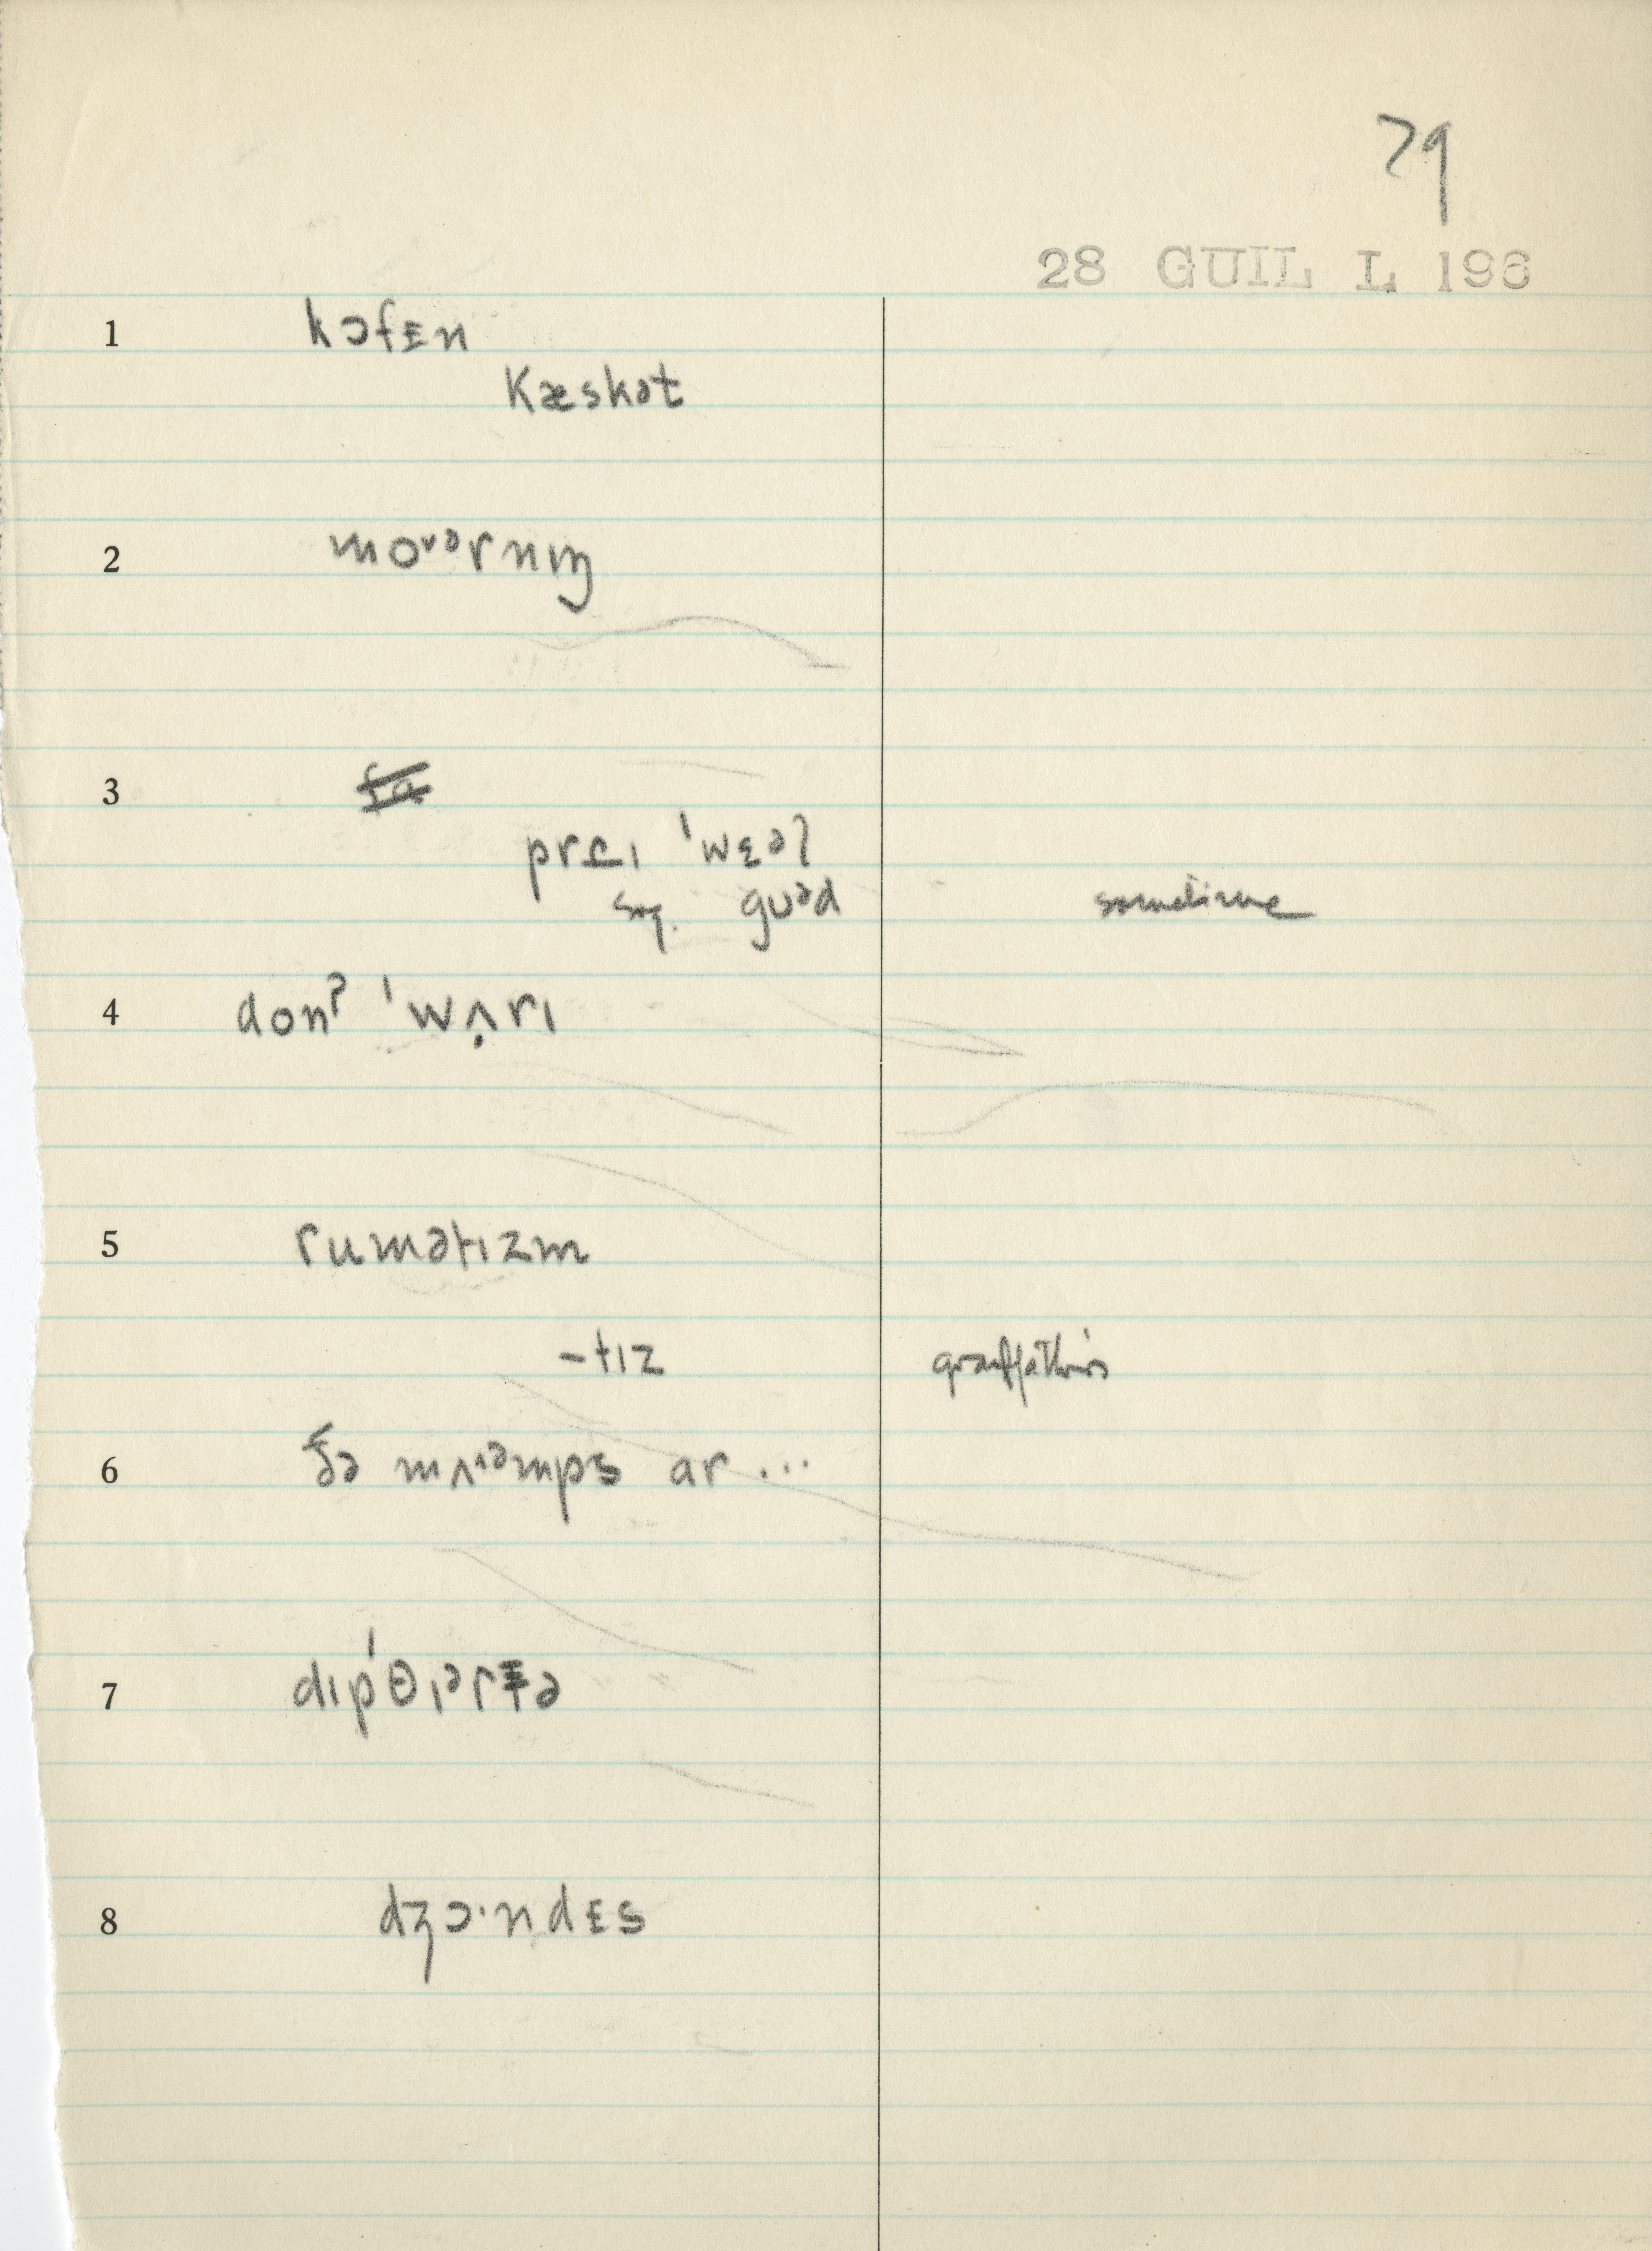 79
28 GUIL L 196
1 kɔfᵻn
kæskət
2 moᵛᵊrnɪŋ
3 fa
prɛɪ ˈwɛəl
sq. gʊᵊd sometime
4 donˀ ˈwʌ̣rɪ
5 rumətɪzm
-tɪz grandfather's
6 ðə mʌᶦᵊmps ar ...
7 dɪpˈθɪᵊrɪə
8 dʒɔ·ndɛs